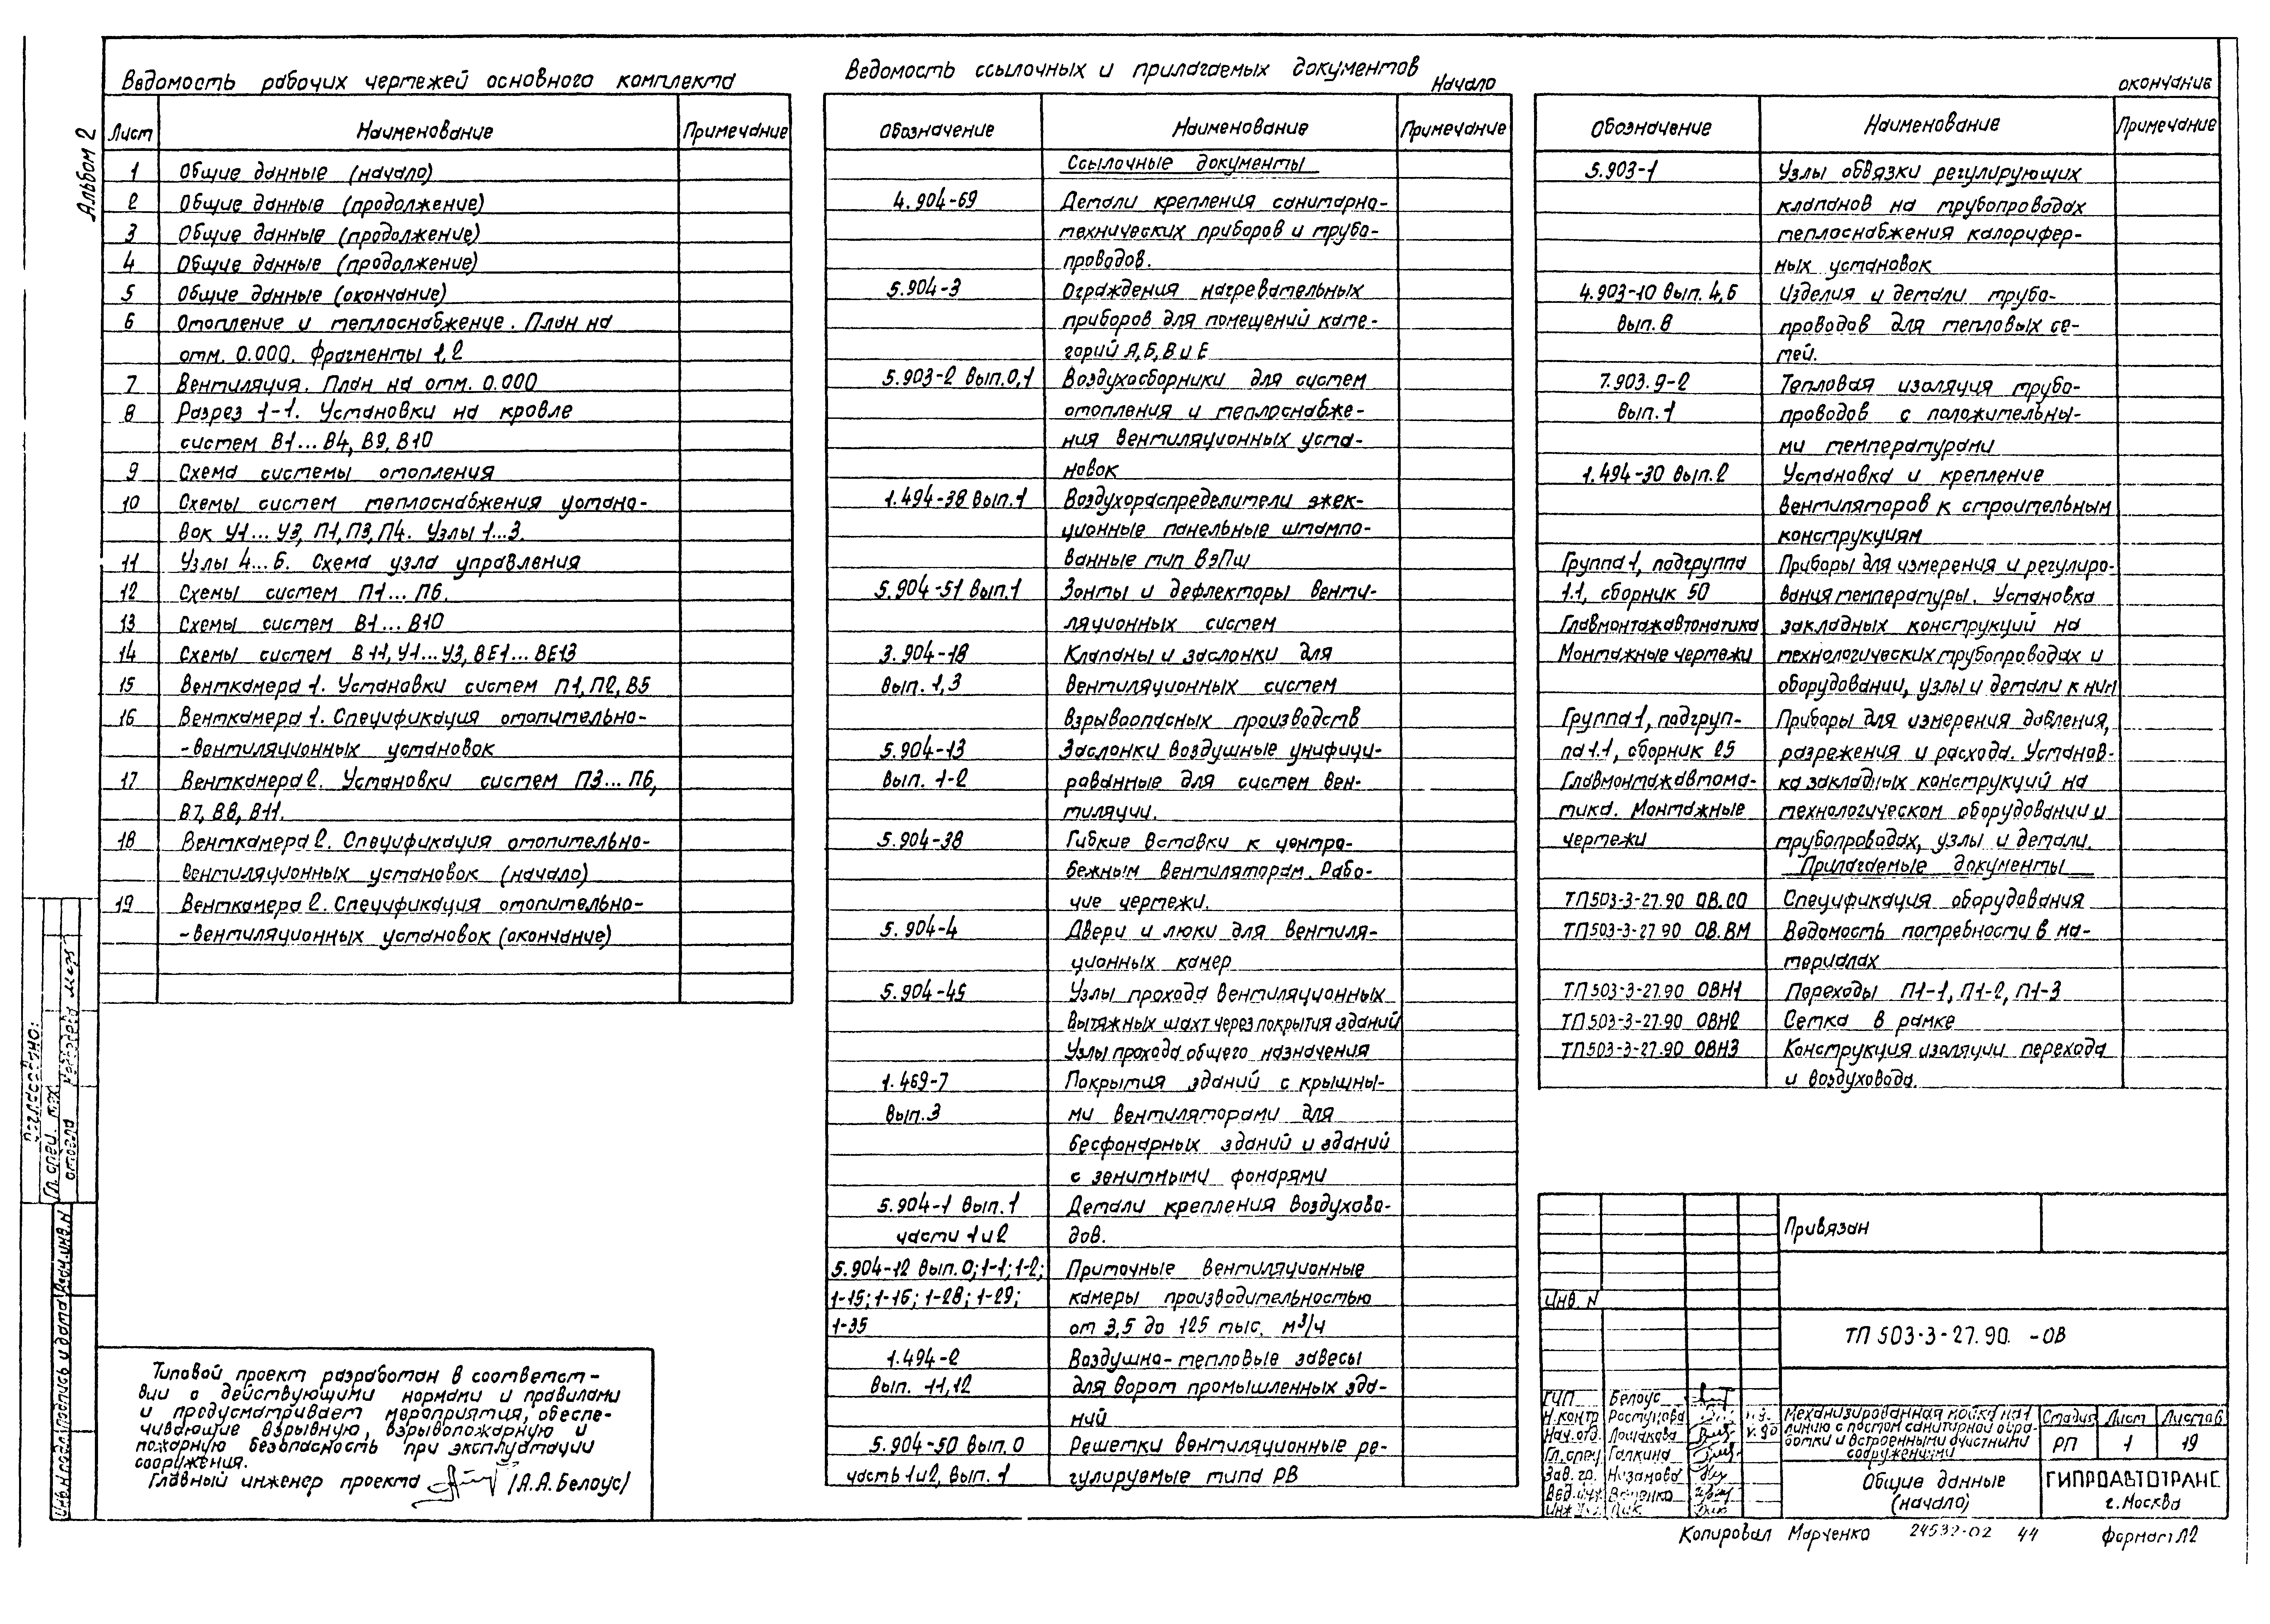 Альбом 2
Ведомость рабочих чертежей основного комплекта
Лист Наименование Примечание
1 Общие данные (начало)
2 Общие данные (продолжение)
3 Общие данные (продолжение)
4 Общие данные (продолжение)
5 Общие данные (окончание)
6 Отопление и теплоснабжение. План на
отм. 0.000. Фрагменты 1,2
7 Вентиляция. План на отм. 0.000
8 Разрез 1-1. Установки на кровле
систем В1...В4, В9, В10
9 Схема системы отопления
10 Схемы систем теплоснабжения устано-
вок У1...У3, П1, П3, П4. Узлы 1...3.
11 Узлы 4...6. Схема узла управления
12 Схемы систем П1...П6.
13 Схемы систем В1...В10
14 Схемы систем В11, У1...У3, ВЕ1...ВЕ13
15 Венткамера 1. Установки систем П1, П2, В5
16 Венткамера 1. Спецификация отопительно-
-вентиляционных установок
17 Венткамера 2. Установки систем П3...П6,
В7, В8, В11.
18 Венткамера 2. Спецификация отопительно-
вентиляционных установок (начало)
19 Венткамера 2. Спецификация отопительно-
-вентиляционных установок (окончание)
Ведомость ссылочных и прилагаемых документов
Начало
Обозначение Наименование Примечание
Ссылочные документы
4.904-69 Детали крепления санитарно-
технических приборов и трубо-
проводов.
5.904-3 Ограждения нагревательных
приборов для помещений кате-
горий А, Б, В и Е
5.903-2 Вып.0,1 Воздухосборники для систем
отопления и теплоснабже-
ния вентиляционных уста-
новок
1.494-38 Вып.1 Воздухораспределители эжек-
ционные панельные штампо-
ванные тип ВэПш
5.904-51 Вып.1 Зонты и дефлекторы венти-
ляционных систем
3.904-18 Клапаны и заслонки для
Вып. 1,3 вентиляционных систем
взрывоопасных производств
5.904-13 Заслонки воздушные унифици-
Вып. 1-2 рованные для систем вен-
тиляции.
5.904-38 Гибкие вставки к центро-
бежным вентиляторам. Рабо-
чие чертежи.
5.904-4 Двери и люки для вентиля-
ционных камер
5.904-45 Узлы прохода вентиляционных
вытяжных шахт через покрытия зданий
Узлы прохода общего назначения
1.469-7 Покрытия зданий с крышны-
Вып.3 ми вентиляторами для
бесфонарных зданий и зданий
с зенитными фонарями
5.904-1 Вып.1 Детали крепления воздухово-
части 1 и 2 дов.
5.904-12 Вып.0; 1-1; 1-2; Приточные вентиляционные
1-15; 1-16; 1-28; 1-29; камеры производительностью
1-35 от 3,5 до 125 тыс. м³/ч
1.494-2 Воздушно-тепловые завесы
Вып. 11,12 для ворот промышленных зда-
ний
5.904-50 Вып.0 Решетки вентиляционные ре-
часть 1и2, Вып. 1 гулируемые типа РВ
окончание
Обозначение Наименование Примечание
5.903-1 Узлы обвязки регулирующих
клапанов на трубопроводах
теплоснабжения калорифер-
ных установок
4.903-10 Вып. 4,6 Изделия и детали трубо-
Вып. 8 проводов для тепловых се-
тей.
7.903.9-2 Тепловая изоляция трубо-
Вып. 1 проводов с положительны-
ми температурами
1.494-30 Вып.2 Установка и крепление
вентиляторов к строительным
конструкциям
Группа 1, подгруппа Приборы для измерения и регулиро-
1.1, сборник 50 вания температуры. Установка
Главмонтажавтоматика закладных конструкций на
Монтажные чертежи технологических трубопроводах и
оборудовании, узлы и детали к ним
Группа 1, подгруп- Приборы для измерения давления,
па 1.1, сборник 25 разрежения и расхода. Установ-
Главмонтажавтома- ка закладных конструкций на
тика. Монтажные технологическом оборудовании и
чертежи трубопроводах, узлы и детали.
Прилагаемые документы
ТП503-3-27.90 ОВ.СО Спецификация оборудования
ТП503-3-27 90 ОВ.ВМ Ведомость потребности в ма-
териалах
ТП503-3-27.90 ОВН1 Переходы П1-1, П1-2, П1-3
ТП503-3-27.90 ОВН2 Сетка в рамке
ТП503-3-27.90 ОВН3 Конструкция изоляции перехода
и воздуховода.
Согласовано:
Гл. спец.
отдела
Инв.N подл. Подпись и дата Взам.инв.N
Типовой проект разработан в соответст-
вии с действующими нормами и правилами
и предусматривает мероприятия, обеспе-
чивающие взрывную, взрывопожарную и
пожарную безопасность при эксплуатации
сооружения.
Главный инженер проекта /А.А.Белоус/
Привязан
Инв. N
ТП 503-3-27.90. -ОВ
ГИП Белоус
Н.контр Растунова
Нач.отд. Лошакова
Гл.спец. Галкина
Зав. гр. Низамова
Вед.инж
Механизированная мойка на 1
линию с постом санитарной обра-
ботки и встроенными очистными
сооружениями
Стадия Лист Листов
РП 1 19
Общие данные
(начало)
ГИПРОАВТОТРАНС
г.Москва
Копировал Марченко 24532-02 44 Формат А2